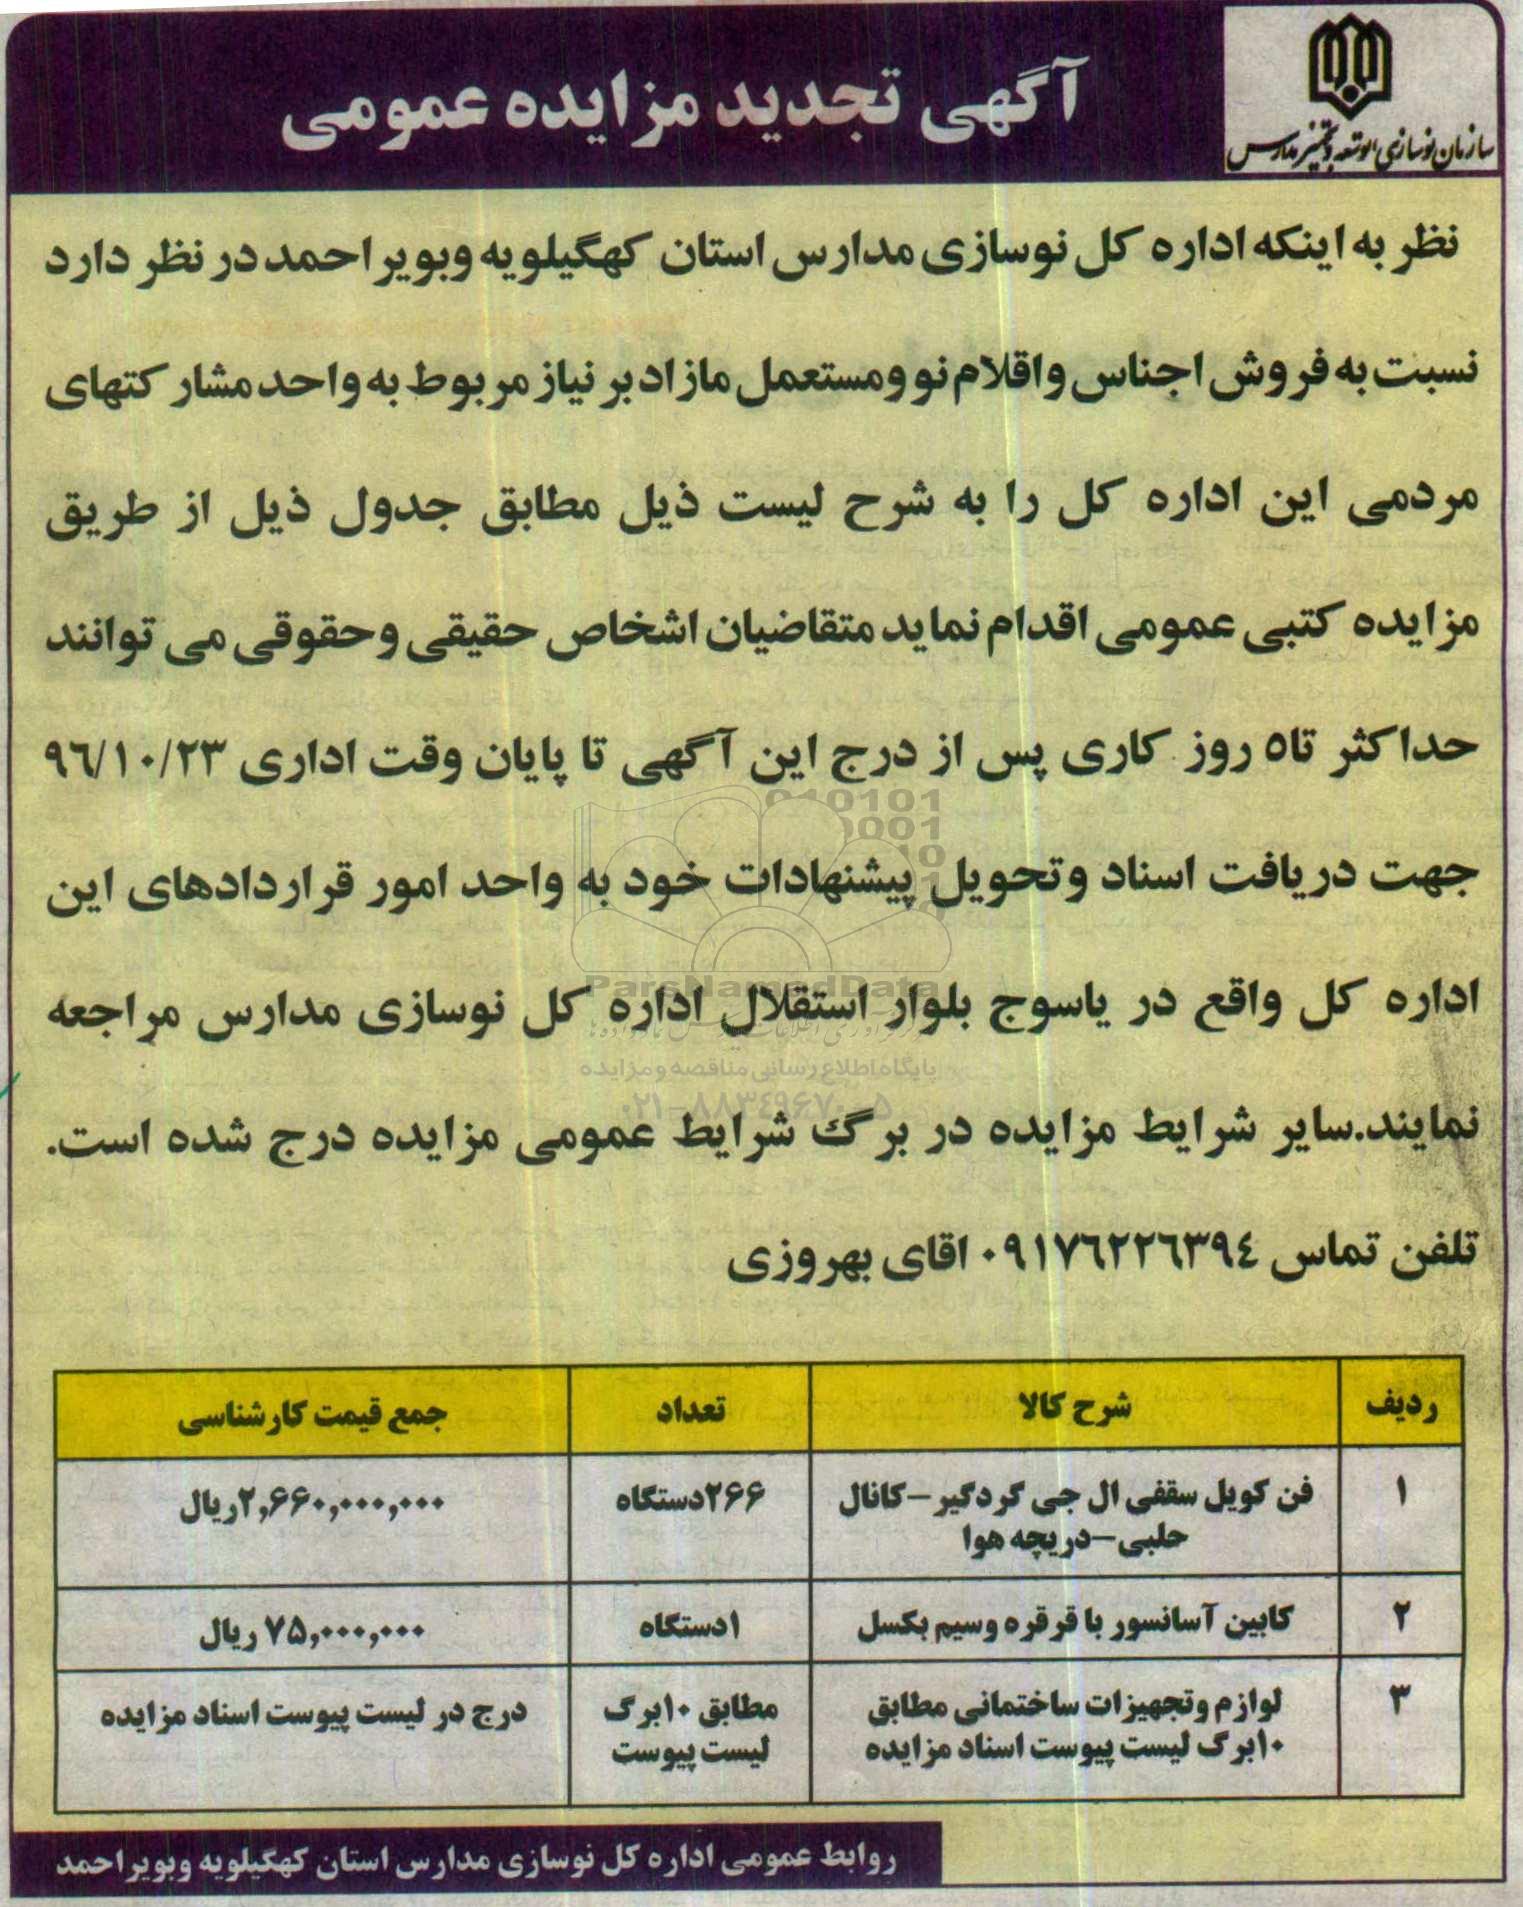 سازمان نوسازی، توسعه و تجهیز مدارس
آگهی تجدید مزایده عمومی
نظر به اینکه اداره کل نوسازی مدارس استان کهگیلویه وبویراحمد در نظر دارد
نسبت به فروش اجناس واقلام نو ومستعمل مازاد بر نیاز مربوط به واحد مشارکتهای
مردمی این اداره کل را به شرح لیست ذیل مطابق جدول ذیل از طریق
مزایده کتبی عمومی اقدام نماید متقاضیان اشخاص حقیقی وحقوقی می توانند
حداکثر تا٥ روز کاری پس از درج این آگهی تا پایان وقت اداری ٩٦/١٠/٢٣
جهت دریافت اسناد وتحویل پیشنهادات خود به واحد امور قراردادهای این
اداره کل واقع در یاسوج بلوار استقلال اداره کل نوسازی مدارس مراجعه
نمایند.سایر شرایط مزایده در برگ شرایط عمومی مزایده درج شده است.
تلفن تماس ٠٩١٧٦٢٢٦٣٩٤ اقای بهروزی
ParsNamadData
پایگاه اطلاع رسانی مناقصه و مزایده
۰۲۱-۸۸۳۴۹۶۷۰-۵
ردیف شرح کالا تعداد جمع قیمت کارشناسی
۱ فن کویل سقفی ال جی گردگیر-کانال حلبی-دریچه هوا ۲۶۶دستگاه ۲,۶۶۰,۰۰۰,۰۰۰ریال
۲ کابین آسانسور با قرقره وسیم بکسل ۱دستگاه ۷۵,۰۰۰,۰۰۰ ریال
۳ لوازم وتجهیزات ساختمانی مطابق ۱۰برگ لیست پیوست اسناد مزایده مطابق ۱۰برگ لیست پیوست درج در لیست پیوست اسناد مزایده
روابط عمومی اداره کل نوسازی مدارس استان کهگیلویه وبویراحمد